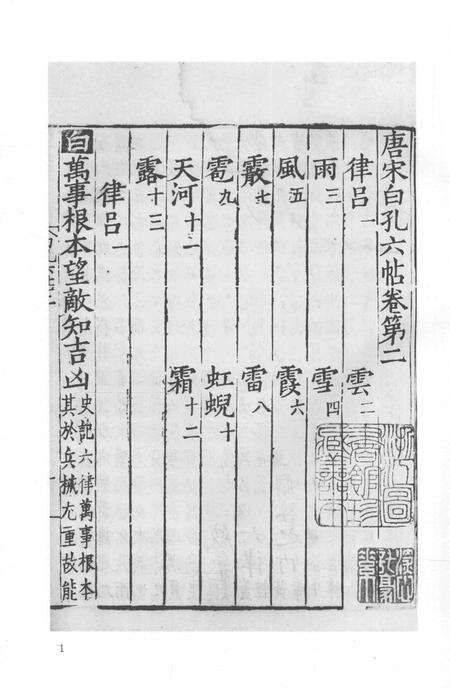 唐宋白孔六帖卷第二
律吕一 雲二
雨三 雪四
風五 霞六
霰七 雷八
雹九 虹蜺十
天河十一 霜十二
露十三
律吕一
白 萬事根本望敵知吉凶
史記六律萬事根本
其於兵械尤重故能
1